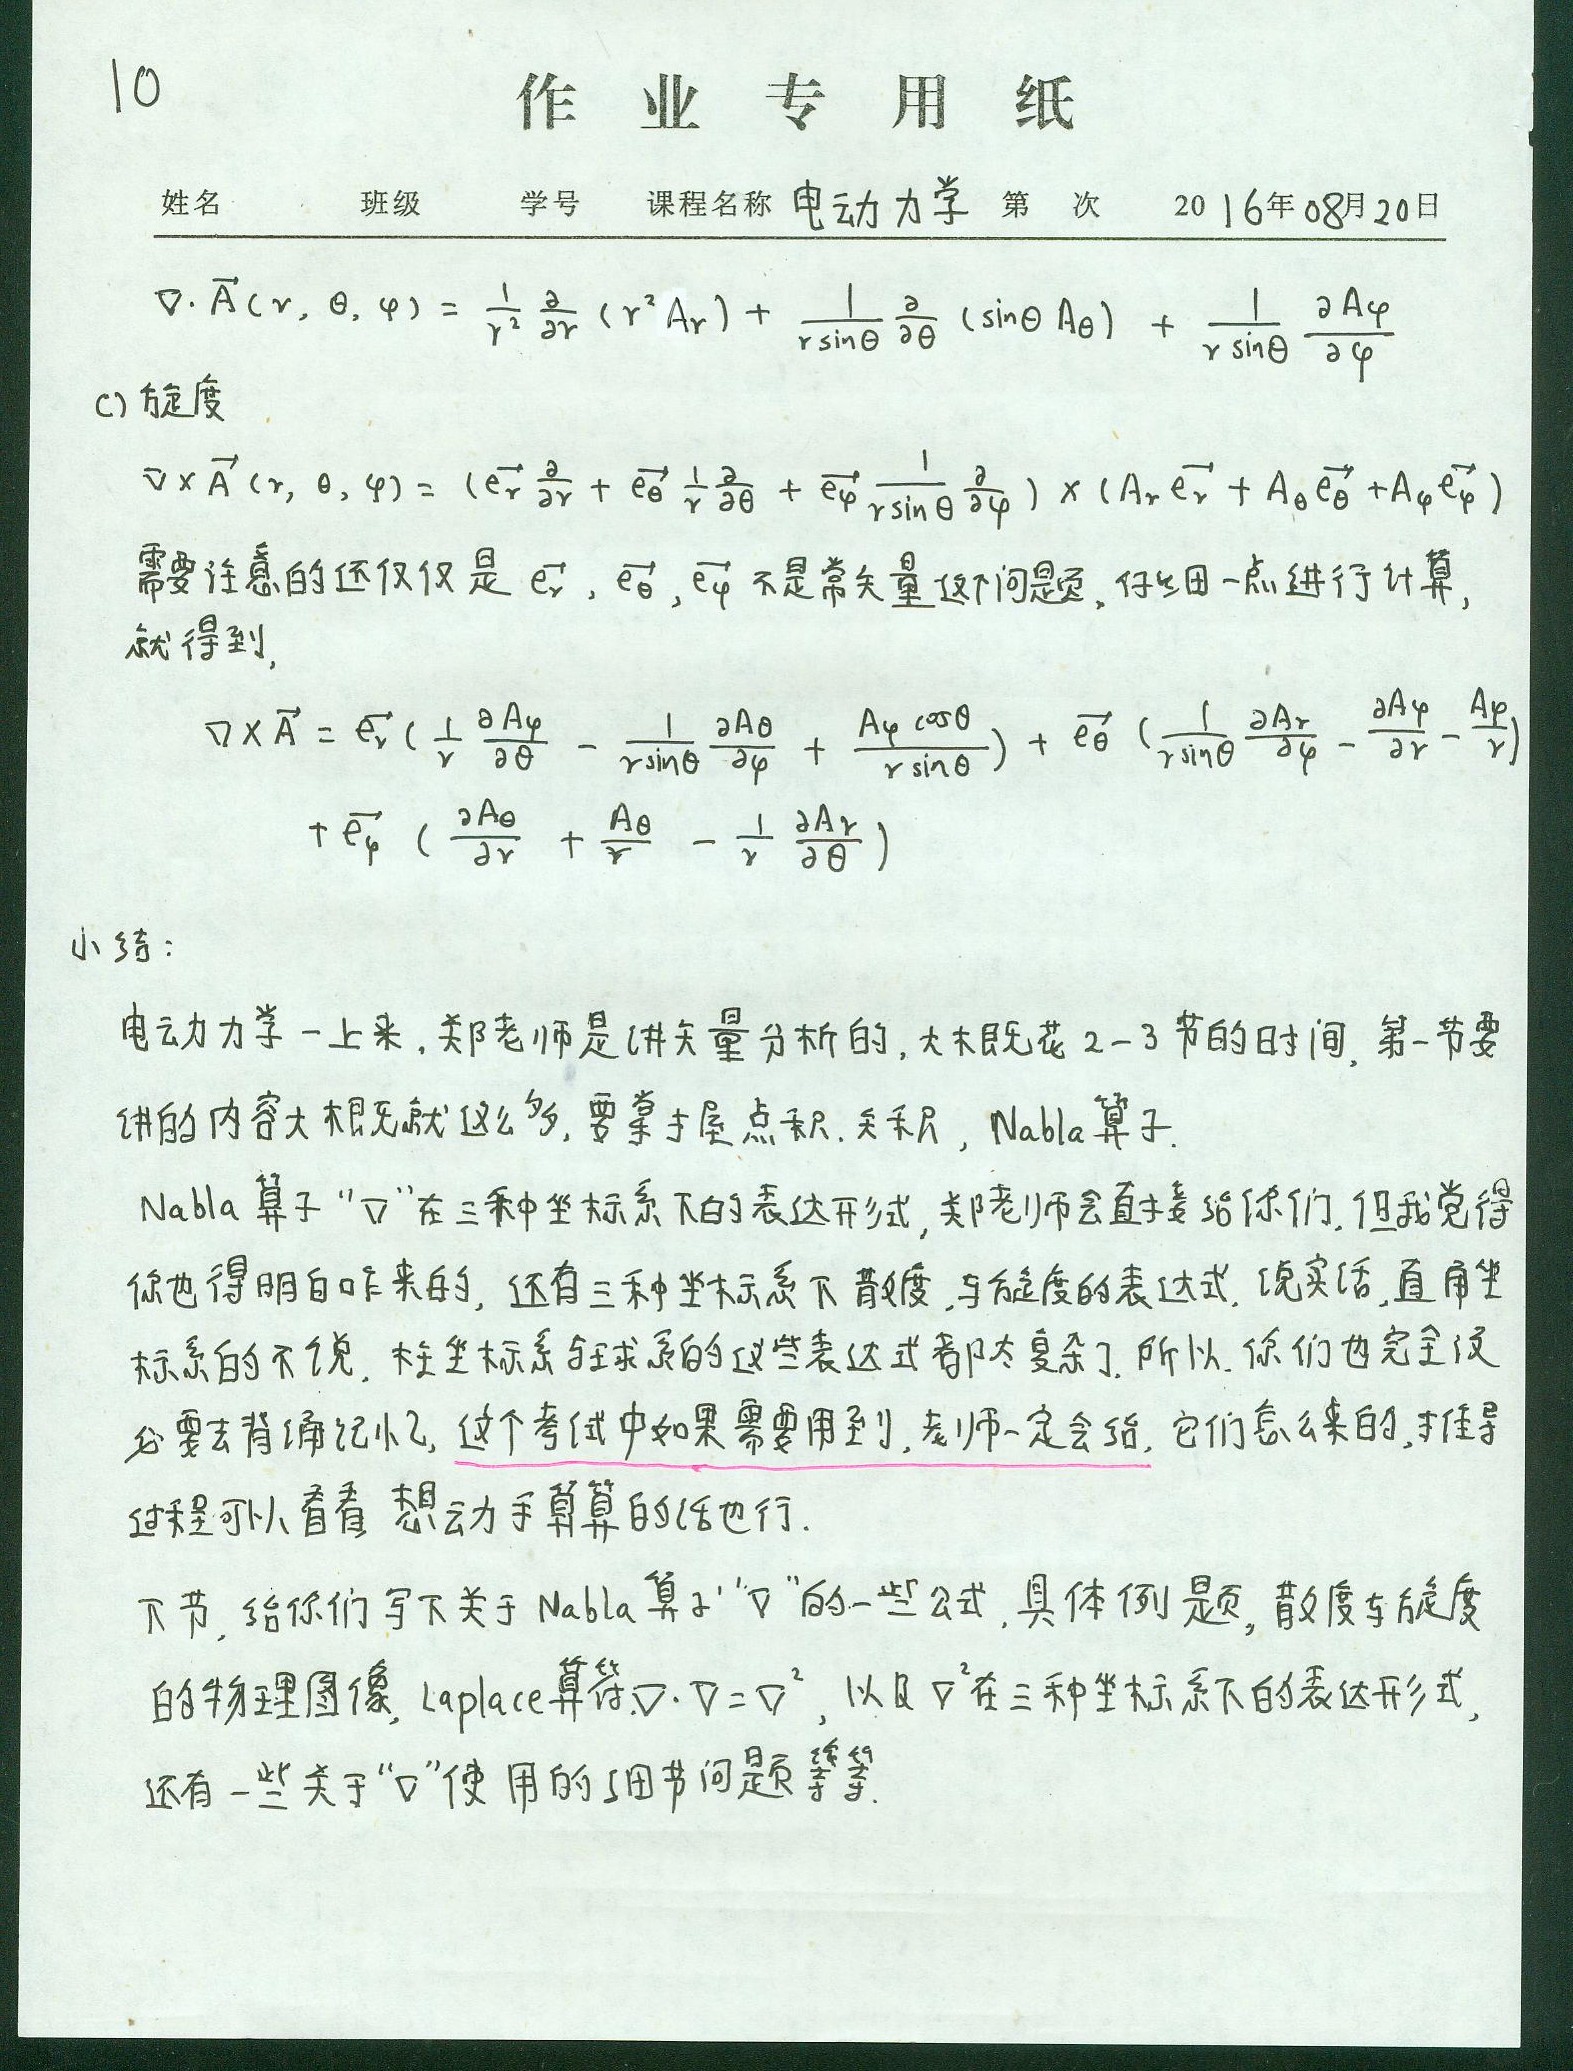 10
作业专用纸
姓名 班级 学号 课程名称 电动力学 第 次 2016年08月20日
∇·A⃗(r, θ, φ) = 1/r² ∂/∂r (r² Aᵣ) + 1/(r sinθ) ∂/∂θ (sinθ A_θ) + 1/(r sinθ) ∂A_φ/∂φ
c) 旋度
∇×A⃗(r, θ, φ) = (e⃗_r ∂/∂r + e⃗_θ 1/r ∂/∂θ + e⃗_φ 1/(r sinθ) ∂/∂φ) × (A_r e⃗_r + A_θ e⃗_θ + A_φ e⃗_φ)
需要注意的还仅仅是 e⃗_r, e⃗_θ, e⃗_φ 不是常矢量这个问题, 仔细一点进行计算,
就得到,
∇×A⃗ = e⃗_r (1/r ∂A_φ/∂θ - 1/(r sinθ) ∂A_θ/∂φ + A_φ cosθ/(r sinθ)) + e⃗_θ (1/(r sinθ) ∂A_r/∂φ - ∂A_φ/∂r - A_φ/r)
+ e⃗_φ (∂A_θ/∂r + A_θ/r - 1/r ∂A_r/∂θ)
小结:
电动力学一上来, 郑老师是讲矢量分析的, 大概花2-3节的时间, 第一节要
讲的内容大概就这么多, 要掌握点积, 叉积, Nabla算子.
Nabla算子"∇"在三种坐标系下的表达形式, 郑老师会直接给你们, 但我觉得
你也得明白咋来的, 还有三种坐标系下散度, 与旋度的表达式. 说实话, 直角坐
标系的不说, 柱坐标系与球系的这些表达式都太复杂了. 所以, 你们也完全没
必要去背诵记忆, 这个考试中如果需要用到, 老师一定会给. 它们怎么来的, 推导
过程可以看看 想动手算算的话也行.
下节, 给你们写下关于Nabla算子"∇"的一些公式, 具体例题, 散度与旋度
的物理图像, Laplace算符∇·∇=∇², 以及∇²在三种坐标系下的表达形式,
还有一些关于"∇"使用的细节问题等等.